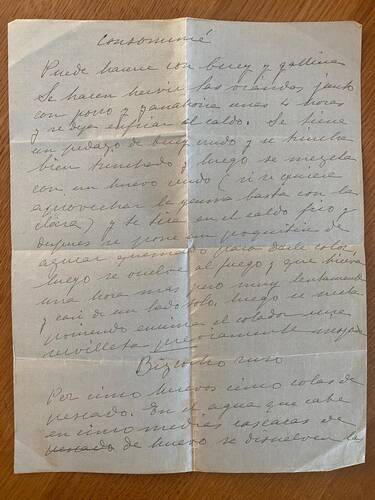 Consommé
Puede hacerse con buey y gallina
Se hacen hervir las viandas junto
con porro y zanahoria unas 4 horas
y se deja enfriar el caldo. Se tiene
un pedazo de buey crudo y se trincha
bien trinchado y luego se mezcla
con un huevo crudo (si se quiere
aprovechar la yema basta con la
clara) y se tira en el caldo frio y
despues se pone un poquitin de
azucar quemado para darle color
luego se vuelve al fuego y que hierva
una hora mas pero muy lentamente
y casi de un lado solo, luego se cuela
poniendo encima el colador una
servilleta previamente mojada
Bizcocho ruso
Por cinco huevos cinco colas de
pescado. En el agua que cabe
en cinco medias cascaras de
de huevo se disuelven la